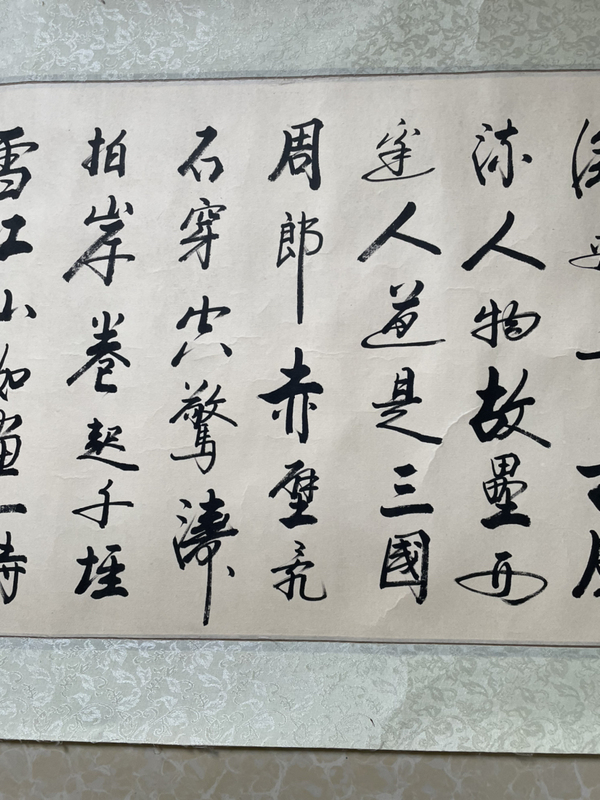 流人物故壘西
邊人道是三國
周郎赤壁亂
石穿空驚濤
拍岸卷起千堆
雪江山如畫一時